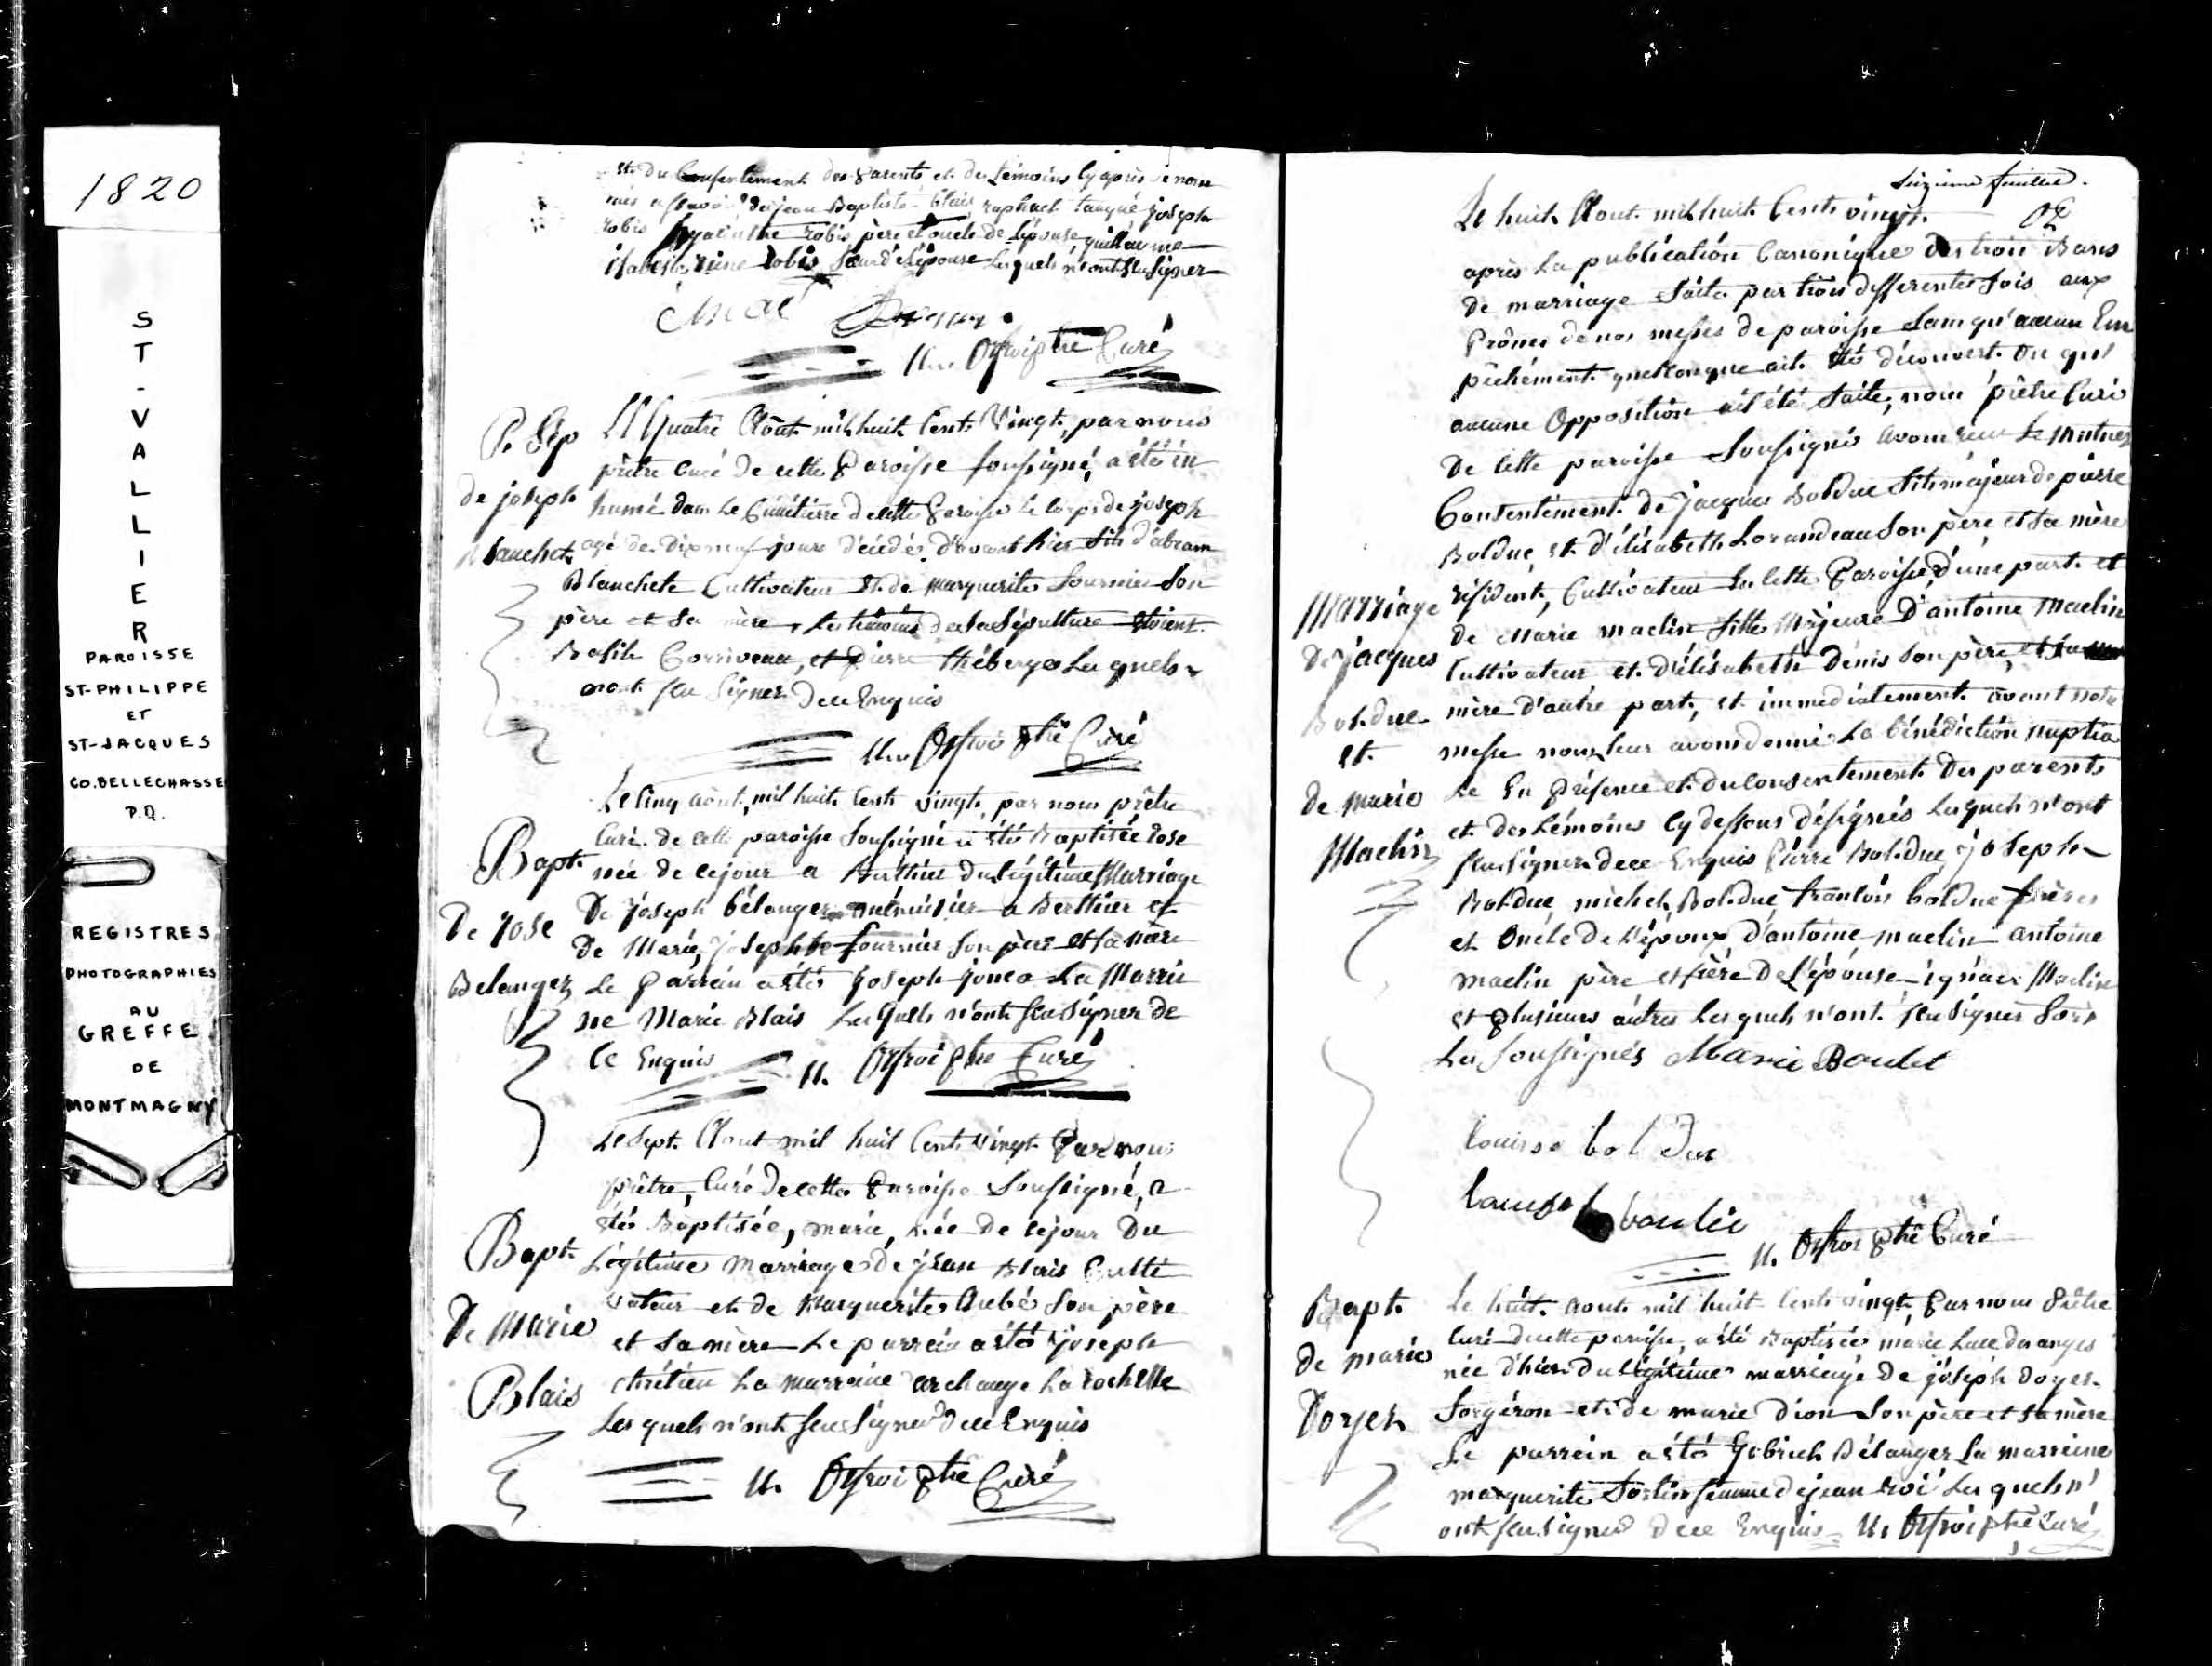 1820
ST-VALLIER
PAROISSE
ST-PHILIPPE
ET
ST-JACQUES
CO. BELLECHASSE
P.Q.
REGISTRES
PHOTOGRAPHIES
AU
GREFFE
DE
MONTMAGNY
et du Consentement des parents et des témoins cy après nom
més Jean Baptiste blais raphael tangué joseph
robis hyacinthe robis père et oncle de l'épouse, guillaume
robis Sœur de l'épouse Lesquels n'ont sçu signer
ptre Curé
P. Sép
de joseph
Blanchet
Le Quatre Aôut mil huit Cent Vingt, par nous
prêtre curé de cette Paroisse soussigné, a été in
humé dans Le Cimétierre de cette Paroisse le corps de joseph
agé de Dix neuf jours décédé d'avant hier fils d'abram
Blanchete Cultivateur Et de marguerite fournier Son
père et sa mère, les témoins de sa Sépulture étoient
Basile Corriveau, et Pierre théberge Lesquels
n'ont sçu Signer de ce Enquis
ptre Curé
Bapt.
De rose
Belanger
Le Cinq aôut, mil huit Cent vingt, par nous prêtre
Curé de cette paroisse Soussigné a été Baptisée rose
née de ce jour a Berthier du légitime Marriage
De joseph bélanger menuisier a Berthier et
De Marie, josephte fournier son père et sa mère
Le Parrein a été joseph jonca La Marrei
ne Marie Blais Lesquels n'ont sçu signer de
Ce Enquis ptre Curé
Bapt.
De Marie
Blais
Le Sept Aout mil huit Cent vingt Par nous
prêtre, Curé de cette Paroisse Soussigné, a
été Baptisée, marie, née de ce jour Du
Légitime Marriage de jean Blais Culti
vateur et de Marguerite Aubé Son père
et Sa mère Le parrein a été joseph
chrétien La marreine archange La rochelle
Lesquels n'ont sçu Signer de ce Enquis
ptre Curé
Seizieme feuillet.
Marriage
De jacques
Bolduc
et
de marie
Maclin
Le huit Aout mil huit Cent vingt
après La publication Canonique des trois Bans
de marriage faite par trois differentes fois aux
Prônes de nos messes de paroisse Sans qu'aucun Em
pêchément quelconque ait été découvert ou qu'
aucune Opposition ait été faite, nous prêtre Curé
De Cette paroisse Soussigné avons reçu Le Mutuel
Consentement de jacques Bolduc fils majeur de pierre
Bolduc, et d'élisabeth Lorandeau Son père, et Sa mère
résident, Cultivateur En Cette Paroisse d'une part et
de Marie maclin fille Majeure D'antoine Maclin
Cultivateur et D'élisabeth Dénis Son père, et sa
mère d'autre part, et immediatement avant notre
messe nous leur avons donné La bénédiction nuptia
Le En Présence et du Consentement Des parents
et des témoins Cy dessous désignés Lesquels n'ont
sçu signer de ce Enquis Pierre Bolduc, joseph
Bolduc, michel, Bolduc francois bolduc frères
et Oncle De L'époux D'antoine maclin antoine
maclin père et frère De L'épouse ignace Maclin
et plusieurs autres Lesquels n'ont sçu signer fors
Les Soussignés Marie Boulet
louise bol duc
ptre Curé
Bapt.
de marie
Doyer
Le huit Aout mil huit Cent vingt, par nous Prêtre
Curé de cette paroisse, a été Baptisée marie Luce des anges
née d'hier du légitime marriage de joseph doyer
forgéron et de marie Dion Son père et Sa mère
Le parrein a été Gabriel Bélanger La marreine
marguerite femme de jean roi Lesquels n'
ont sçu signer de ce Enquis ptre Curé